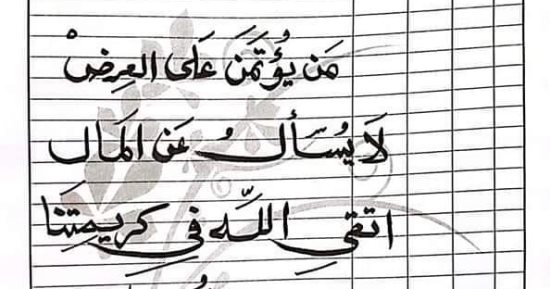 مَن يُؤتَمَنَ عَلى العِرِضْ
لَا يُسَألُ عَن المَال
اتقيِ اللَّه فيِ كريمتِنَا